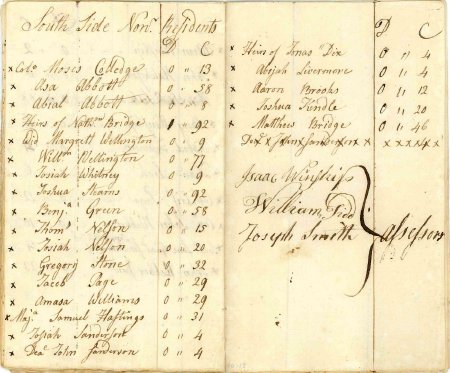 South Side Non. Residents
D C
x Colo. Moses Colledge 0 " 13
x Asa Abbott 0 " 58
x Abial Abbott 0 " 8
x Heirs of Nathn. Bridge 1 92
x Wid Margrett Wellington 0 " 9
x Willm. Wellington 0 " 77
x Josiah Whitney 0 " 9
x Joshua 0 " 92
x Benja. Green 0 " 58
x Thoms. Nelson 0 " 15
x Josiah Nelson 0 " 20
x Gregory Stone 0 " 32
x Jacob Page 0 " 29
x Amasa Williams 0 " 29
x Maj. Samuel Hastings 0 " 31
x Josiah Sanderson 0 " 4
x Dea. John Sanderson 0 " 4
D C
x Heirs of Jonas Dix 0 " 4
x Abijah Livermore 0 " 4
x Aaron Brooks 0 " 12
x Joshua Kindle 0 " 20
x Matthew Bridge 0 " 46
Isaac Winship
William
Joseph Smith
Assessors